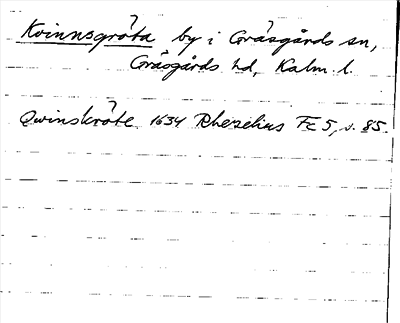 Kvinnsgröta by i Gräsgårds sn,
Gräsgårds hd, Kalm. l.
Qwinskröte 1634 Rhezelius Fc 5, s. 85.